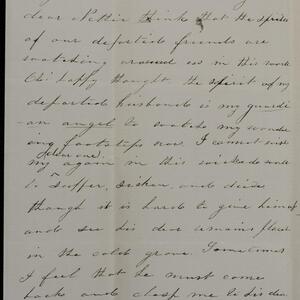 dear Nettie think that the spirits
of our departed friends are
watching around us in this world
Oh! happy thought the spirit of my
departed husband is my guardi
an angel to watch my wander
ing footsteps now. I cannot wish
dear one
my again in this wicked world
to suffer, sicken, and die
though it is hard to give him up
and see his dear remains place
in the cold grave. Sometimes
I feel that he must come
back and clasp me to his dea